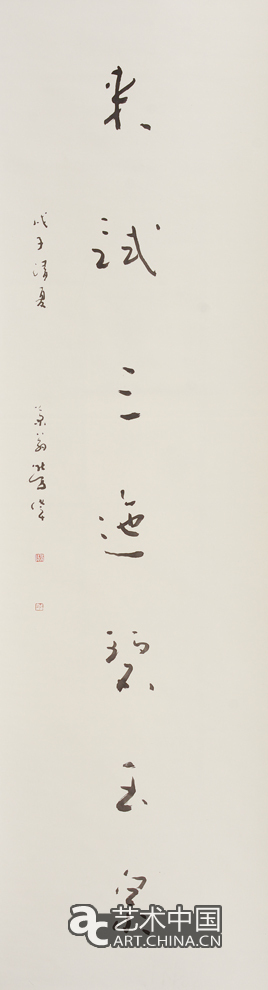 来試三迤碧玉泉
戊子清夏
ac 艺术中国
ART.CHINA.CN